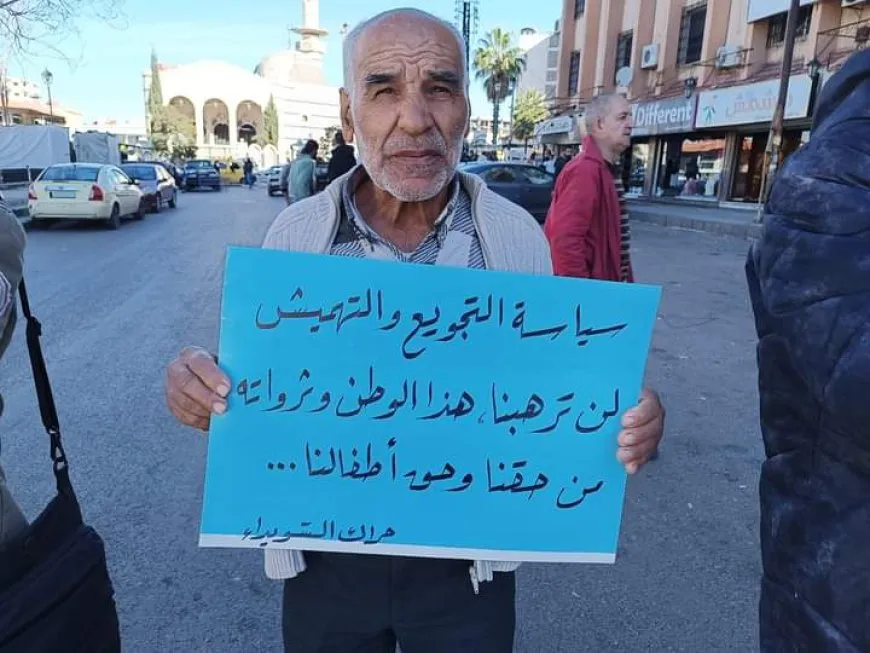 سياسة التجويع والتهميش
لن ترهبنا، هذا الوطن وثرواته
من حقنا وحق أطفالنا ...
حراك السويداء
Different